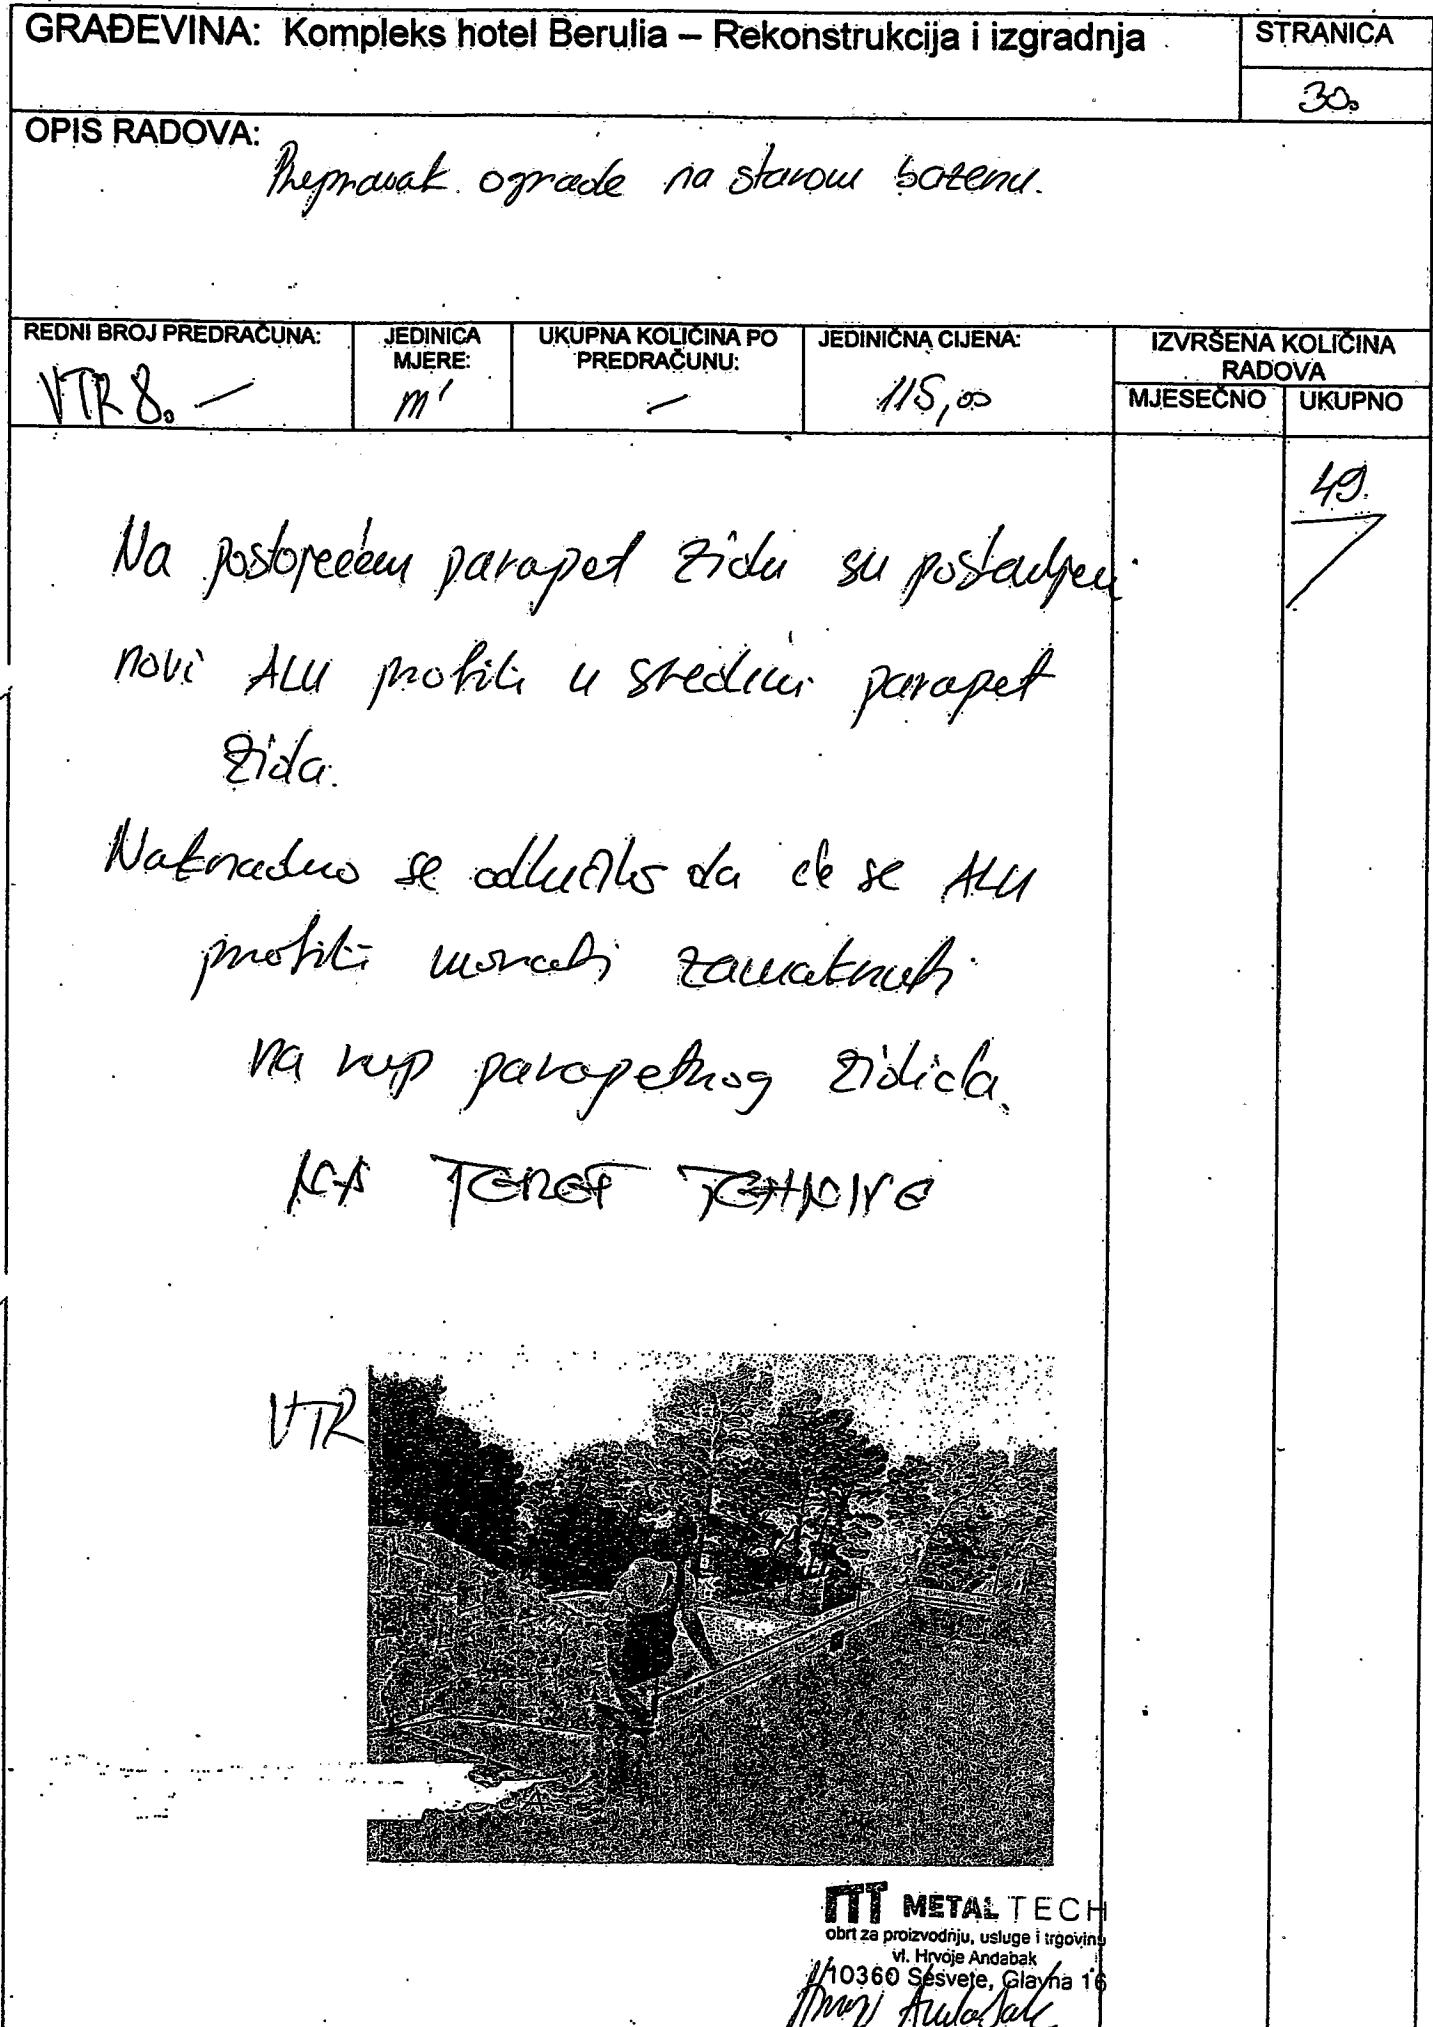 GRAĐEVINA: Kompleks hotel Berulia – Rekonstrukcija i izgradnja
STRANICA
30.
OPIS RADOVA:
Prepravak ograde na starom bazenu.
REDNI BROJ PREDRAČUNA:
VTR 8. –
JEDINICA MJERE:
m'
UKUPNA KOLIČINA PO PREDRAČUNU:
–
JEDINIČNA CIJENA:
115,00
IZVRŠENA KOLIČINA RADOVA
MJESEČNO
UKUPNO
49.
Na postojećem parapet zidu su postavljeni
novi ALU profili u sredini parapet
zida.
Naknadno se odlučilo da će se ALU
profili morati zamaknuti
na rup parapetnog zidića.
NA TERET TEHNIKE
VTR
METAL TECH
obrt za proizvodnju, usluge i trgovinu
vl. Hrvoje Andabak
10360 Sesvete, Glavna 16